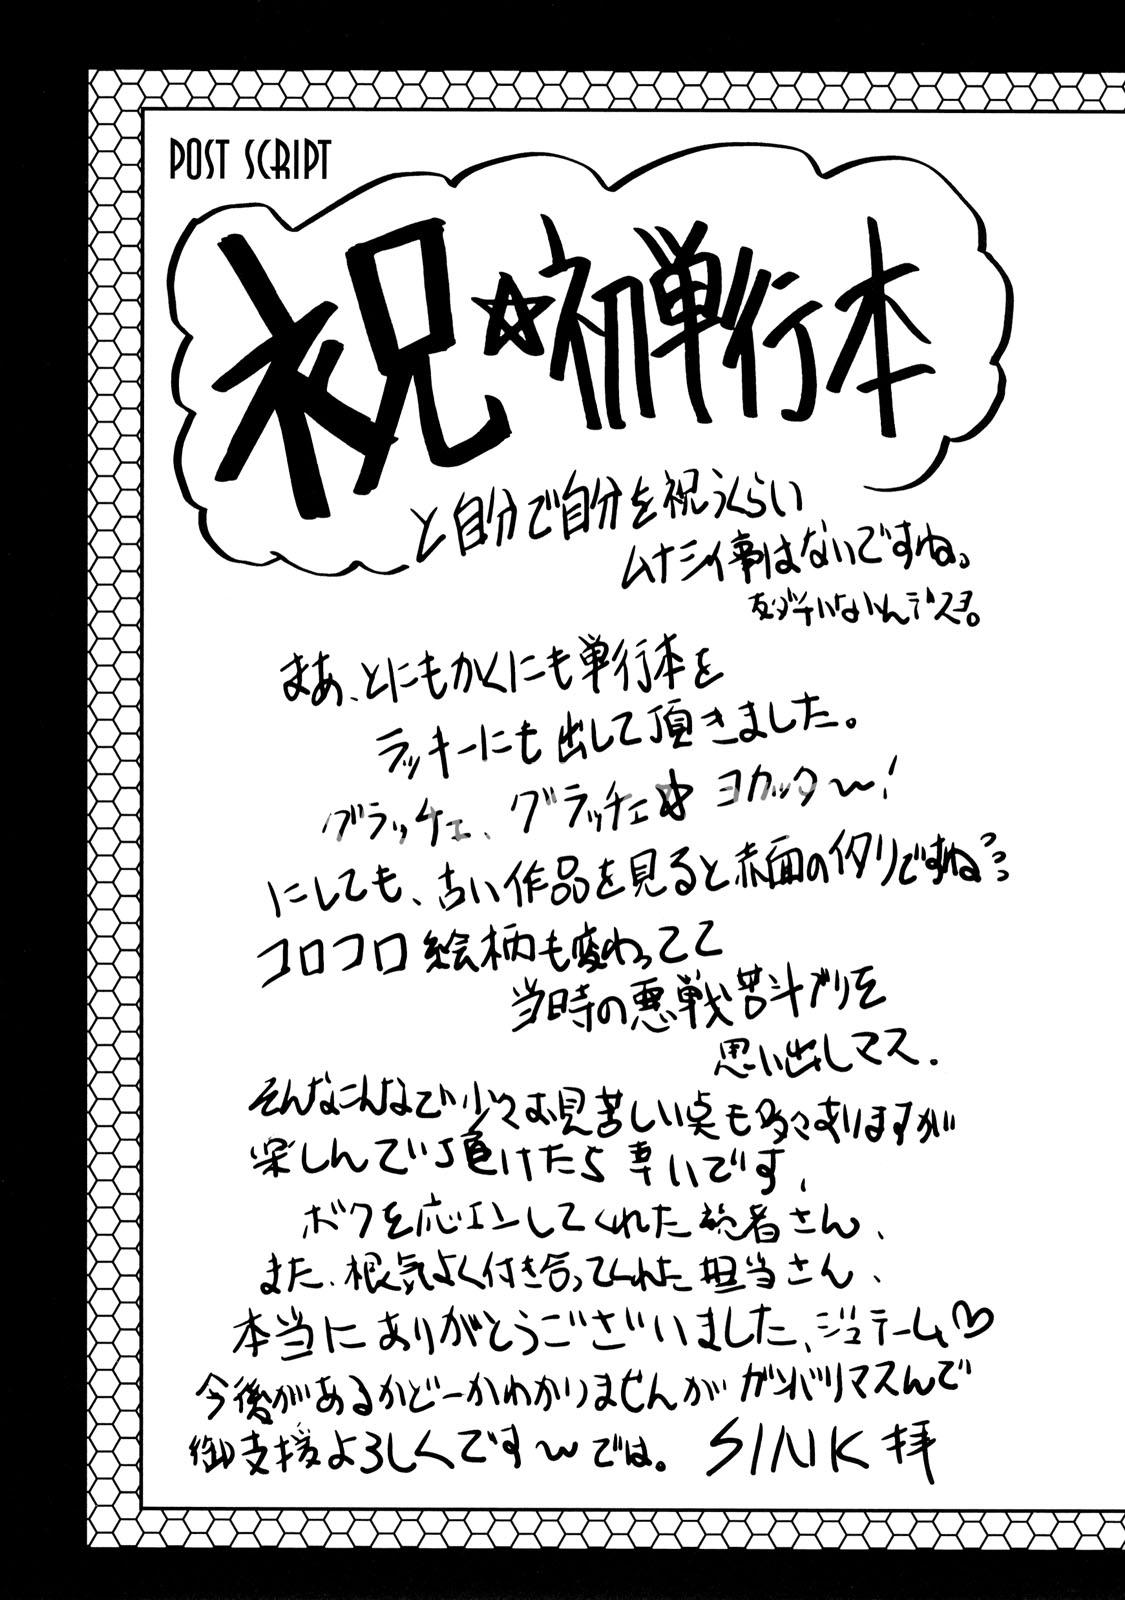 POST SCRIPT
祝☆初単行本
と自分で自分を祝うくらい
ムナシイ事はないですね。
友ダチいないんデスヨ。
まあ、とにもかくにも単行本を
ラッキーにも出して頂きました。
グラッチェ、グラッチェ☆ヨカッタ〜!
にしても、古い作品を見ると赤面のイタリですね
コロコロ絵柄も変わってて
当時の悪戦苦斗ブリを
思い出しマス.
そんなこんなで少々お見苦しい点も多々ありますが
楽しんで頂けたら幸いです,
ボクを応エンしてくれた読者さん、
また、根気よく付き合ってくれた担当さん、
本当にありがとうございました、ジュテーム♡
今後があるかどーかわかりませんがガンバリマスんで
御支援よろしくです〜では。SINK拝